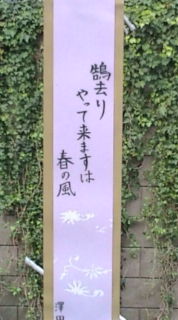 鵠去り
やって来ますは
春の風
澤田